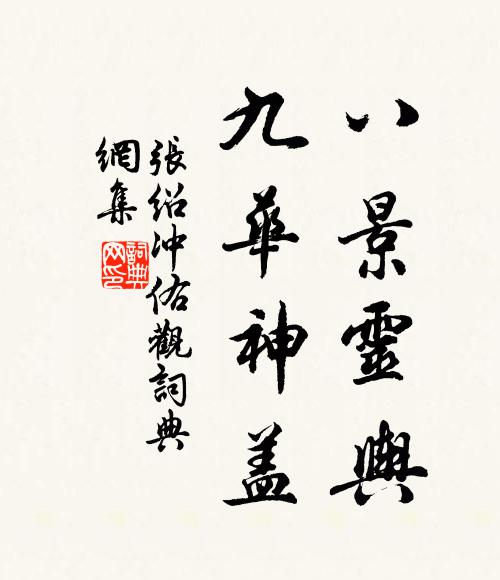 八景靈輿
九華神盖
張紹冲佑觀詞典
網集
詞典
网印